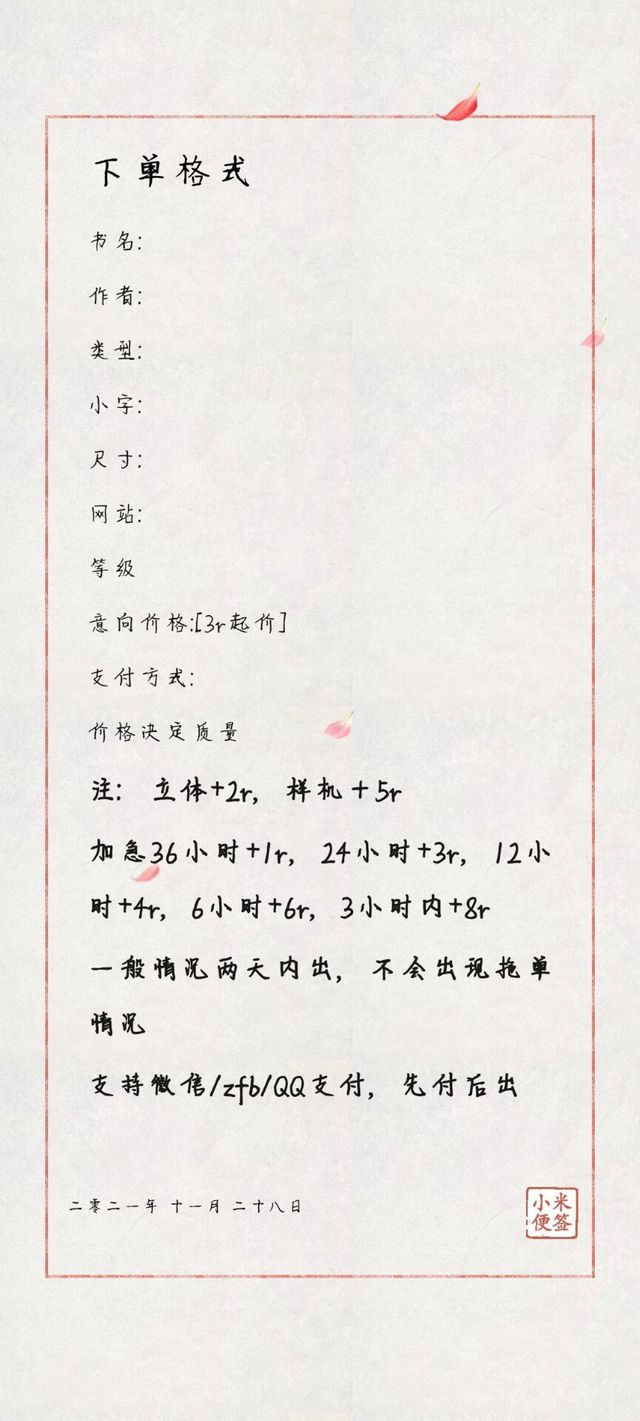 下单格式
书名:
作者:
类型:
小字:
尺寸:
网站:
等级
意向价格:[3r起价]
支付方式:
价格决定质量
注: 立体+2r, 样机+5r
加急36小时+1r, 24小时+3r, 12小
时+4r, 6小时+6r, 3小时内+8r
一般情况两天内出, 不会出现拖单
情况
支持微信/zfb/QQ支付, 先付后出
二零二一年 十一月 二十八日
小米
便签